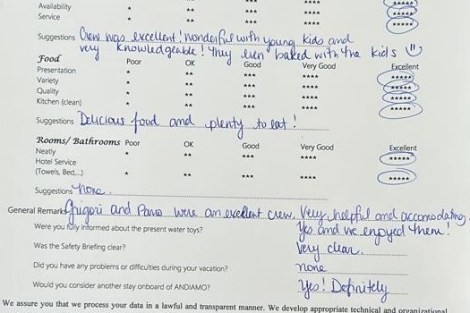 Availability * ** *** **** *****
Service * ** *** **** *****
Suggestions Crew was excellent! wonderful with young kids and
very knowledgeable! They even baked with the kids
Food Poor OK Good Very Good Excellent
Presentation * ** *** **** *****
Variety * ** *** **** *****
Quality * ** *** **** *****
Kitchen (clean) * ** *** **** *****
Suggestions Delicious food and plenty to eat!
Rooms/ Bathrooms Poor OK Good Very Good Excellent
Neatly * ** *** **** *****
Hotel Service
(Towels, Bed,...) * ** *** **** *****
Suggestions None.
General Remarks Grigori and were an excellent crew. Very helpful and accomodating.
Were you fully informed about the present water toys? Yes and we enjoyed them!
Was the Safety Briefing clear? Very clear.
Did you have any problems or difficulties during your vacation? none
Would you consider another stay onboard of ANDIAMO? Yes! Definitely
We assure you that we process your data in a lawful and transparent manner. We develop appropriate technical and organizational